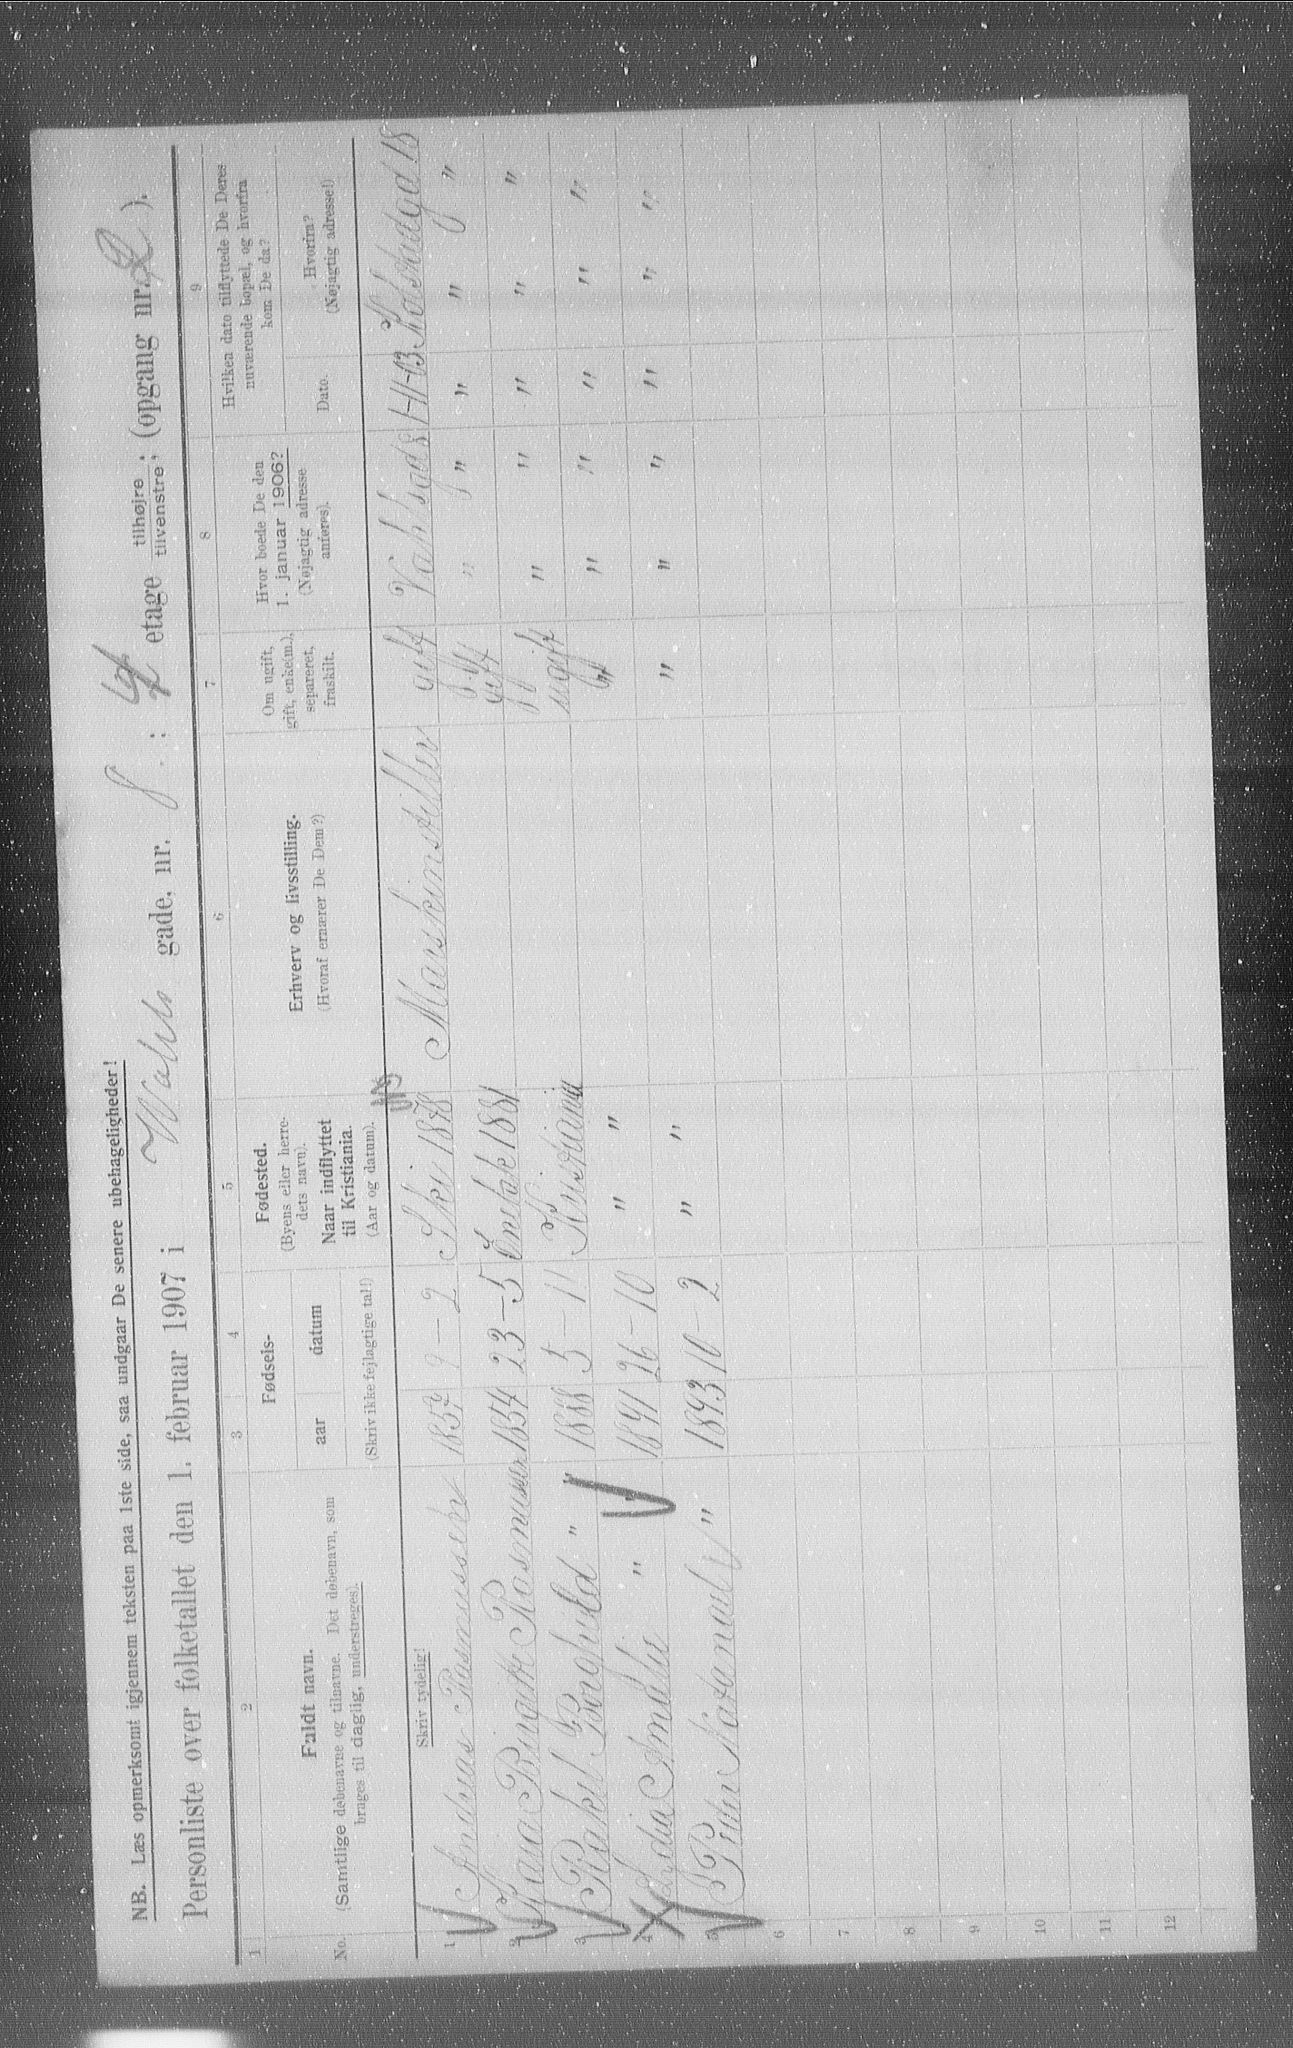 NB. Læs opmerksomt igjennem teksten paa 1ste side, saa undgaar De senere ubehageligheder!
Personliste over folketallet den 1. februar 1907 i Wahls gade, nr. 8 : 4 etage tilhøjre, tilvenstre; (opgang nr. 2 ).
1 2 3 4 5 6 7 8 9
No.
Fuldt navn.
(Samtlige døbenavne og tilnavne. Det døbenavn, som
bruges til daglig, understreges).
Fødsels-
aar datum
(Skriv ikke fejlagtige tal!)
Fødested.
(Byens eller herre-
dets navn).
Naar indflyttet
til Kristiania.
(Aar og datum).
Erhverv og livsstilling.
(Hvoraf ernærer De Dem?)
Om ugift,
gift, enke(m.),
separeret,
fraskilt.
Hvor boede De den
1. januar 1906?
(Nøjagtig adresse
anføres).
Hvilken dato tilflyttede De Deres
nuværende bopæl, og hvorfra
kom De da?
Dato.
Hvorfra?
(Nøjagtig adresse!)
Skriv tydelig!
1 Andreas Rasmussen 1857 9-2 Ski 1878 Maskinstiller gift Vahlsgd 8 1-11-03
2 Birgitte Rasmussen 1854 23-5 Enebak 1881 gift " " " " "
3 Rakel Borghild " 1888 5-11 Kristiania ugift " " " " "
4 Lydia Amalie " " 1891 26-10 " " " " " " " "
5 Peder Natanael " 1893 10-2 " " " " " " " "
6
7
8
9
10
11
12